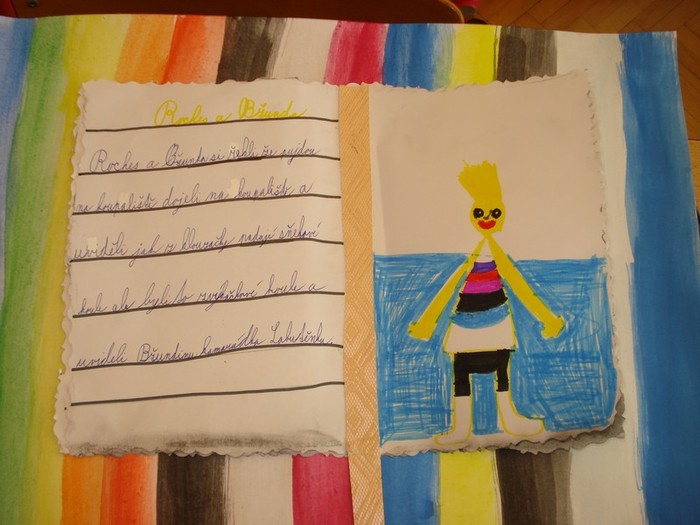 Roches a Břunda
Roches a Břunda si řekli že pujdou
na koupaliště dojeli na koupaliště a
uviděli jak ze klouzačky padají sněhové
koule ale byli to vyzkoškové koule a
uviděli Břundinu kamarádku Labutěnku.